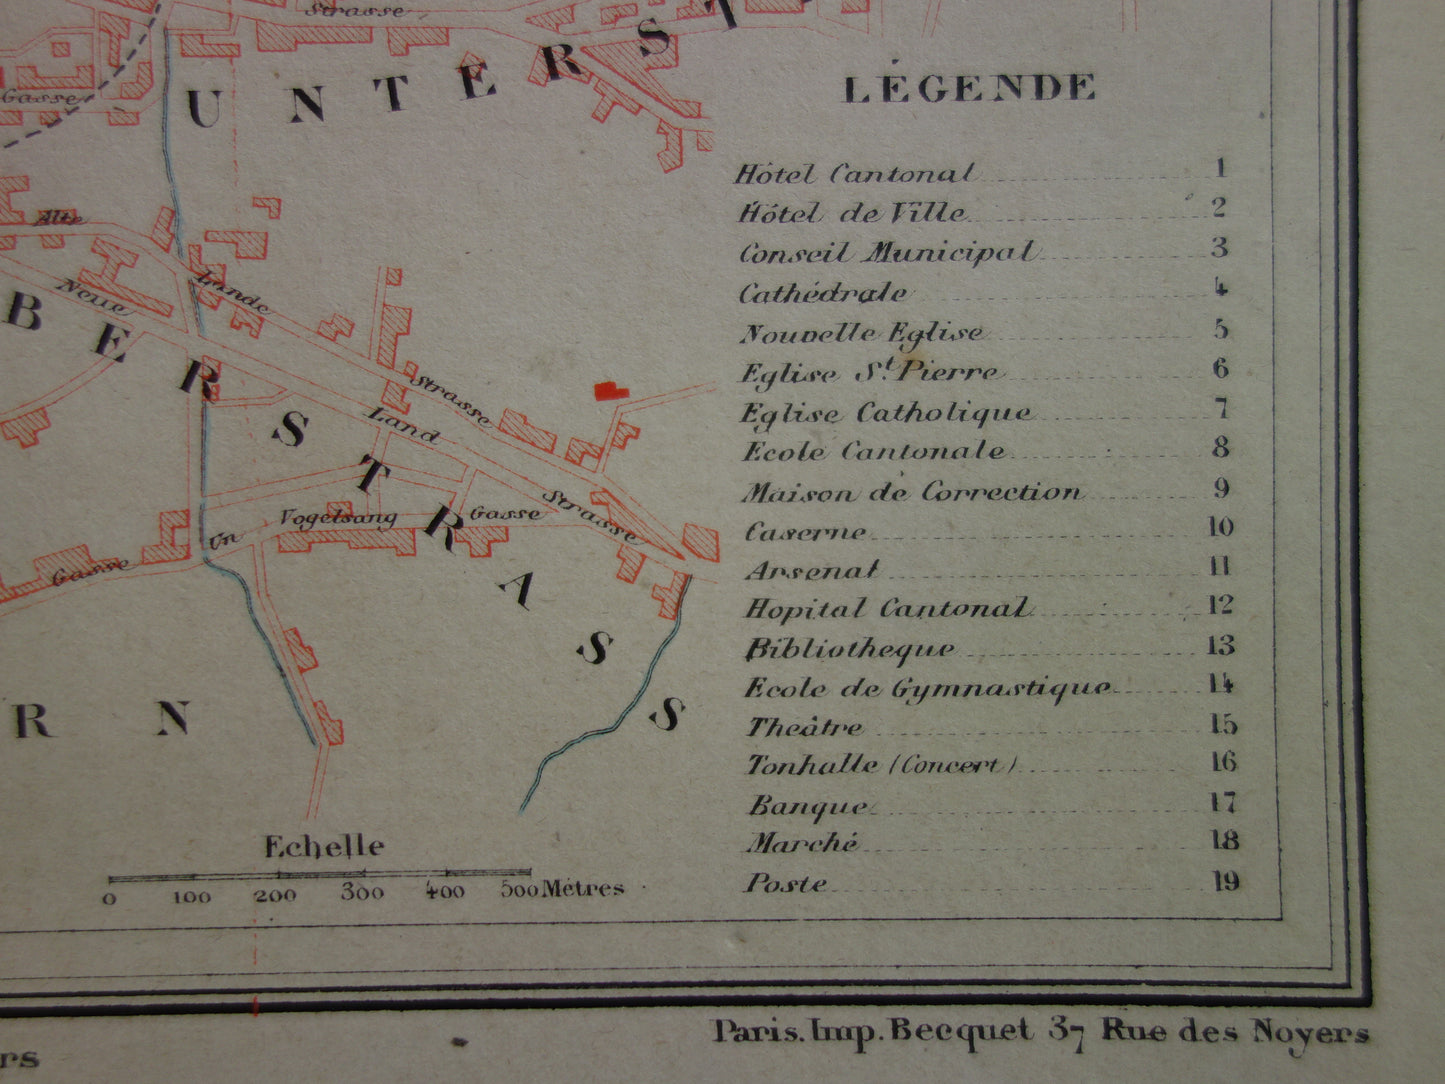 Strasse
UNTERST
Gasse
Alte
Lande
Neue
BERSTRASS
Strasse
Land
Strasse
Vogelsang Gasse
Un
Gasse
RN
LÉGENDE
Hôtel Cantonal 1
Hôtel de Ville 2
Conseil Municipal 3
Cathédrale 4
Nouvelle Eglise 5
Eglise St. Pierre 6
Eglise Catholique 7
Ecole Cantonale 8
Maison de Correction 9
Caserne 10
Arsenal 11
Hopital Cantonal 12
Bibliotheque 13
Ecole de Gymnastique 14
Theâtre 15
Tonhalle (Concert) 16
Banque 17
Marché 18
Poste 19
Echelle
0 100 200 300 400 500 Métres
Paris. Imp. Becquet 37 Rue des Noyers
rs